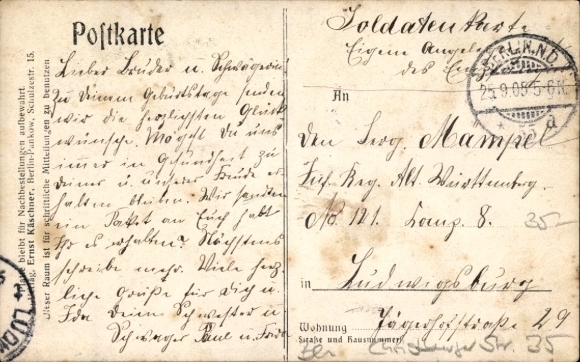 Postkarte
Lieber Bruder u. Schwägerin
Zu Deinem Geburtstage senden
wir die herzlichsten Glück-
wünsche. Mögest Du uns
immer in Gesundheit zu
Deiner u. unserer Freude er-
halten bleiben. Wir sandten
ein Paket an Euch habt
Ihr es erhalten? Nächstens
schreibe mehr. Viele herz-
liche Grüße für Dich u.
Ida Deine Schwester u
Schwager Paul u.
Platte bleibt für Nachbestellungen aufbewahrt.
Verlag. Ernst Käschner, Berlin-Pankow, Schulzestr. 15.
Dieser Raum ist für schriftliche Mitteilungen zu benutzen
Soldatenkarte
Eigene Angel
des
BERLIN.N.O.
25.9.08.5-6N.
* 55 a
An
den Serg. Mampel
Reg. Alt. Württemberg.
No. 121. Komp. 8.
35-
in Ludwigsburg
Wohnung Jägerhofstraße 29
Straße und Hausnummer
Str. 35
LUD